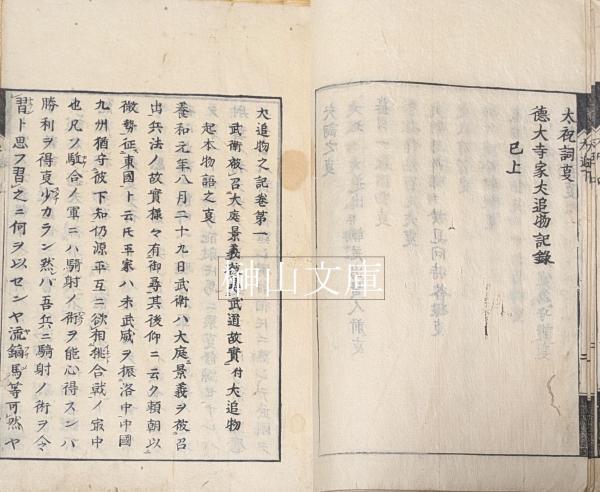 犬追物之記巻第一
武衛被召大庭景義被尋武道故実付犬追物
起本物語之事
養和元年八月二十九日武衛ハ大庭景義ヲ被召
出兵法ノ故実様々有御尋其後仰ニ云ク頼朝以
微勢征東国ト云氏平家ハ未武威ヲ振洛中中国
九州猶守彼下知仍源平互ニ欲相挑合戦ノ最中
也凡ソ馳合ノ軍ニハ騎射ノ術ヲ能心得スンハ
勝利ヲ得事少カラン然ハ吾兵ニ騎射ノ術ヲ令
習ト思フ習之ニ何ヲ以センヤ流鏑馬等可然ヤ
犬詞事
徳大寺家犬追物記録
已上
榊山文庫